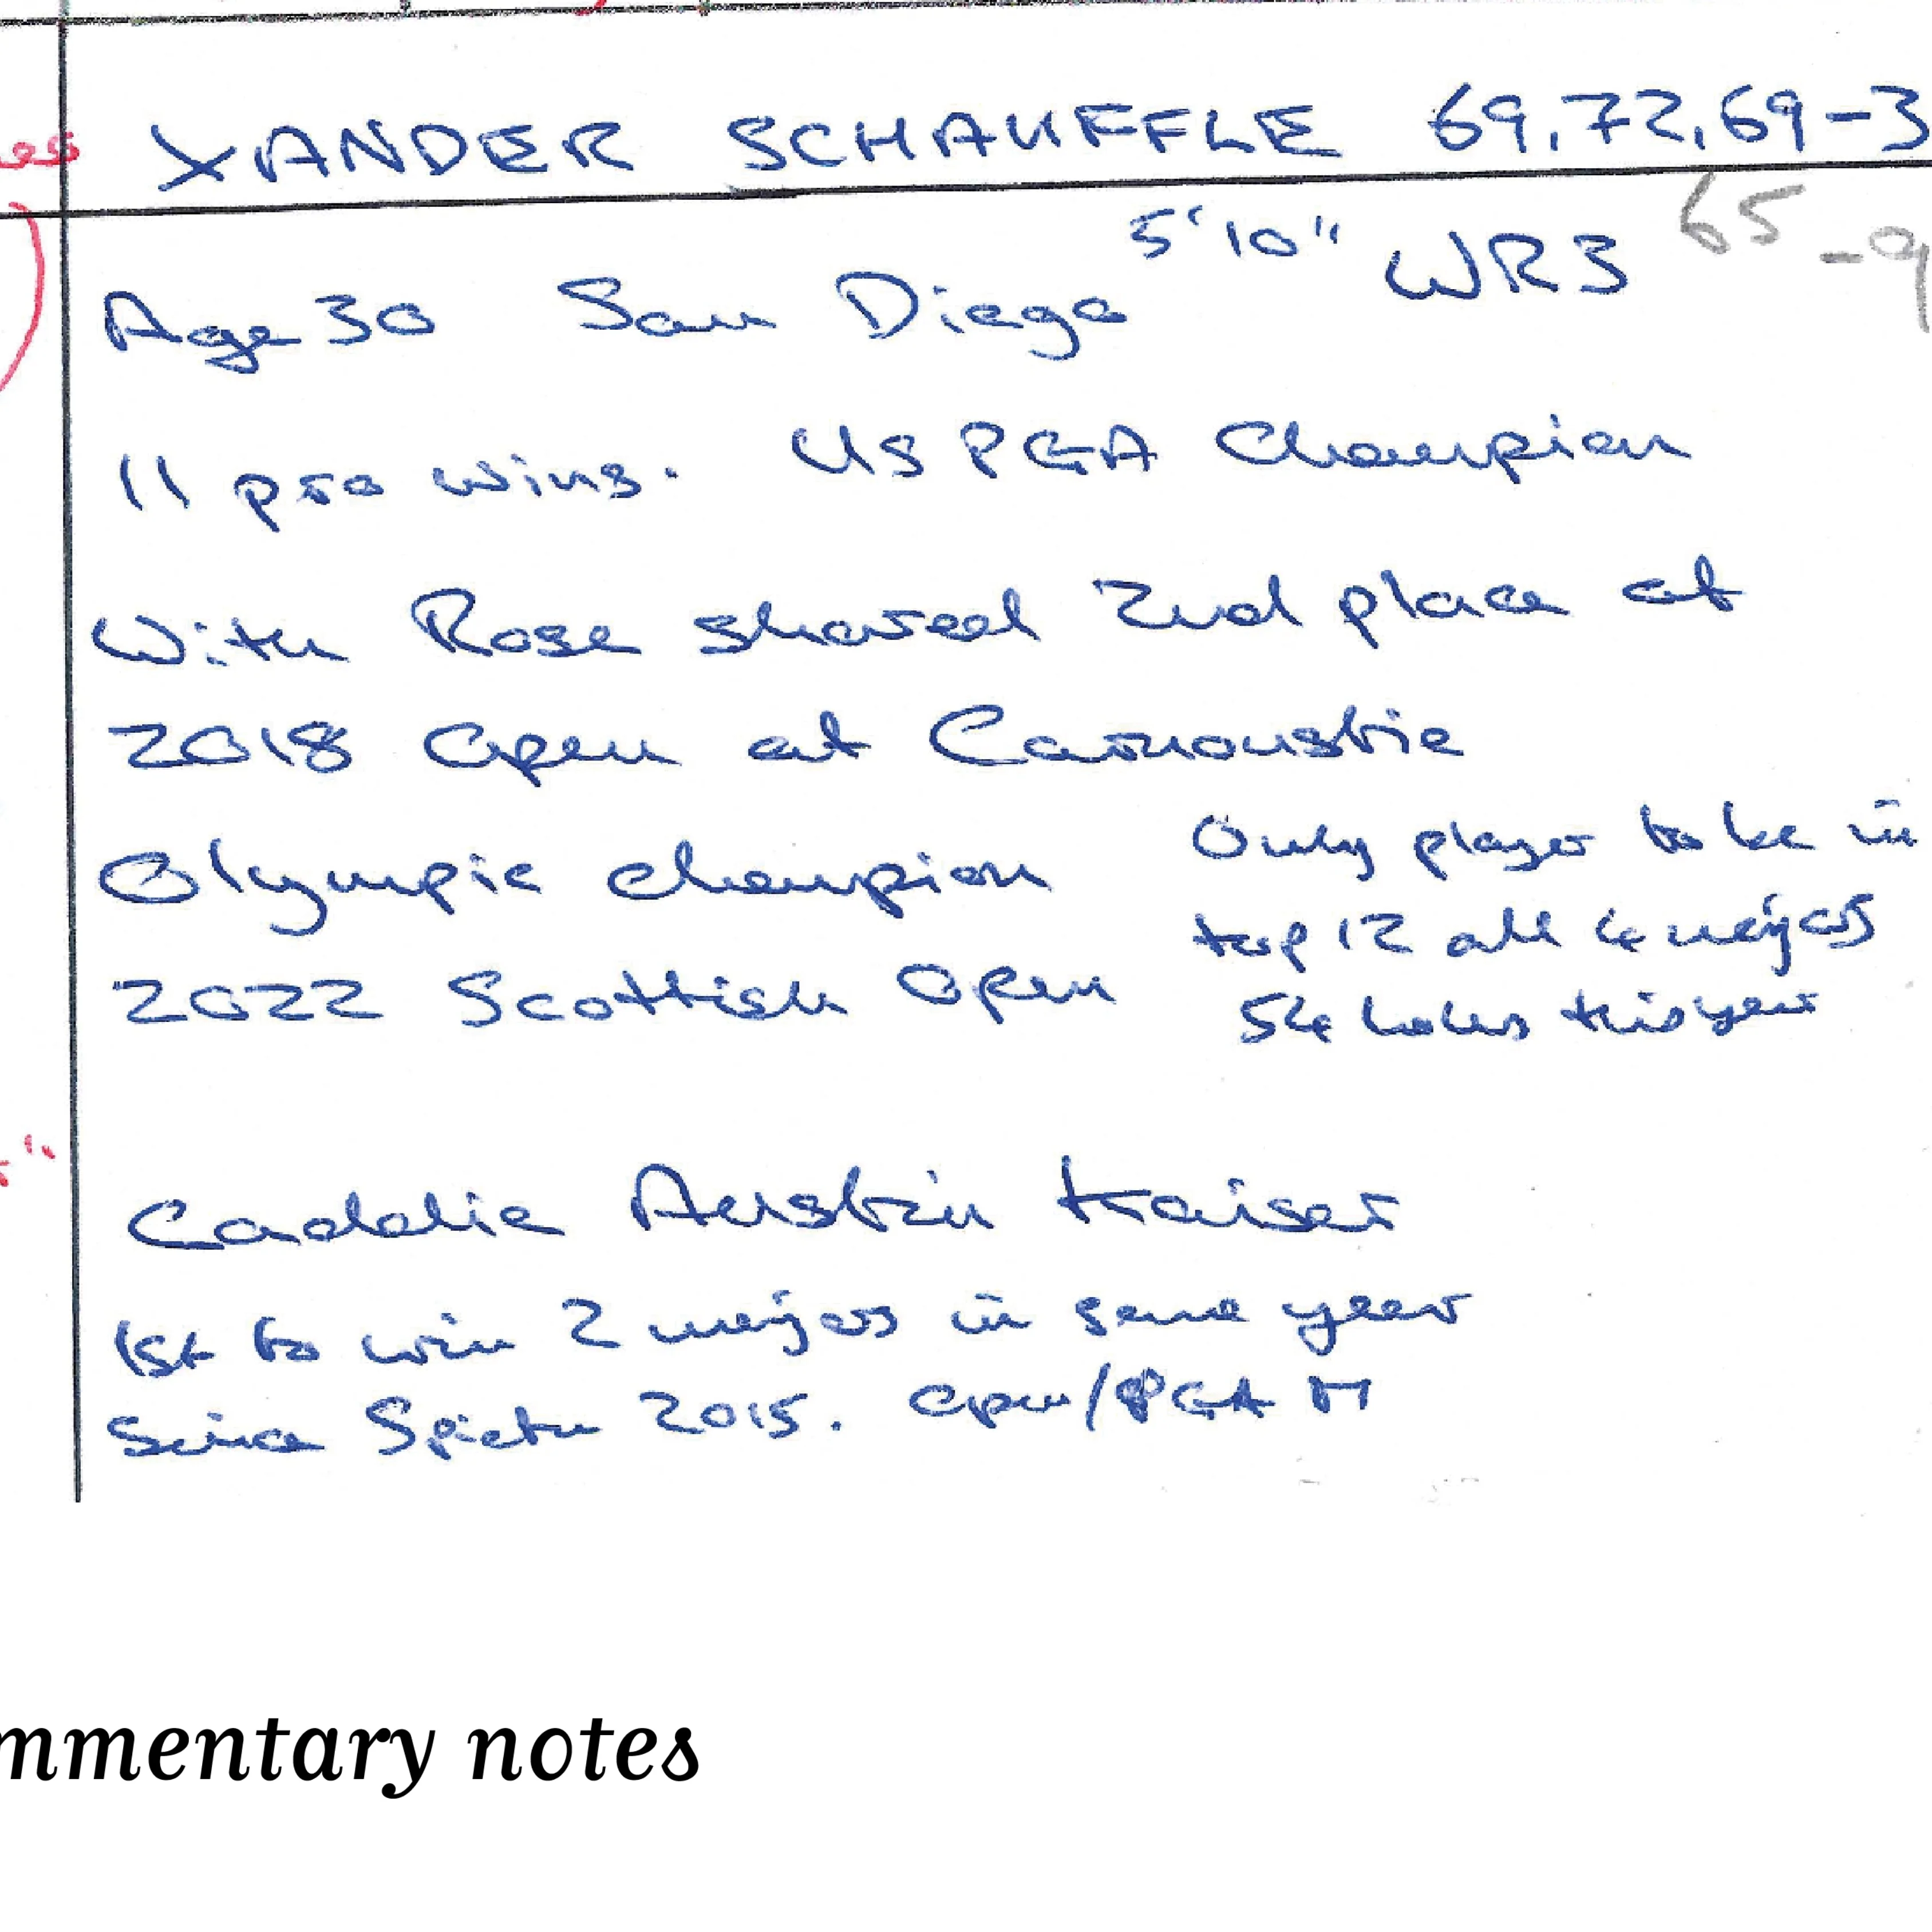 XANDER SCHAUFFLE 69.72.69-3
65 -9
5'10" WR3
Age 30 San Diego
11 pro wins. US PGA Champion
With Rose shared 2nd place at
2018 Open at Carnoustie
Olympic champion
2022 Scottish Open
Only player to be in
top 12 all 4 majors
54 holes this year
Caddie Austin Kaiser
1st to win 2 majors in same year
Since Spieth 2015. Open/PGA M
mmentary notes